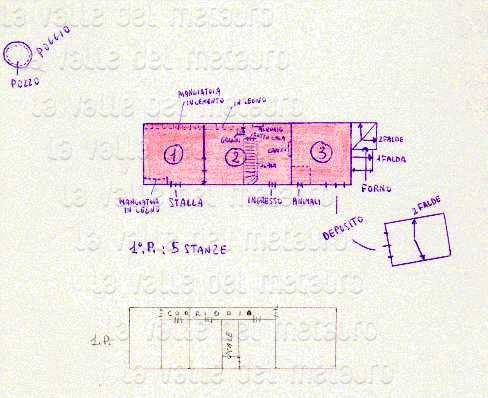 la valle del metauro
POGGIO
POZZO
la valle del metauro
MANGIATOIA
IN CEMENTO
IN LEGNO
la valle del metauro
GRADINI
SOTTO SCALA
1
2
3
SCALA
2 FALDE
1 FALDA
FORNO
MANGIATOIA
IN LEGNO
STALLA
INGRESSO
ANIMALI
DEPOSITO
2 FALDE
1°. P. : 5 STANZE
la valle del metauro
CORRIDOIO
1.P.
SCALE
la valle del metauro